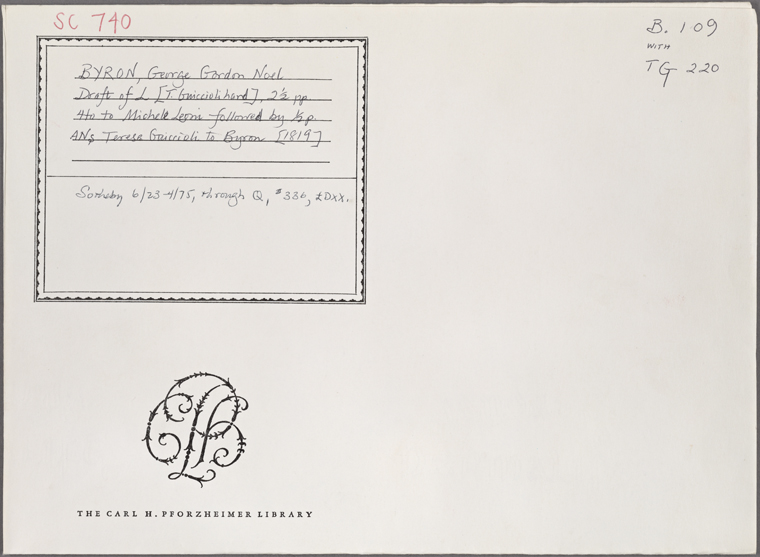 SC 740
B. 109
WITH
TG 220
BYRON, George Gordon Noel
Draft of L [T. Guiccioli hand], 2½ pp.
4to to Michele Leoni followed by ½ p.
ANs Teresa Guiccioli to Byron [1819]
Sotheby 6/23-4/75, through Q, #336, £Dxx.
THE CARL H. PFORZHEIMER LIBRARY